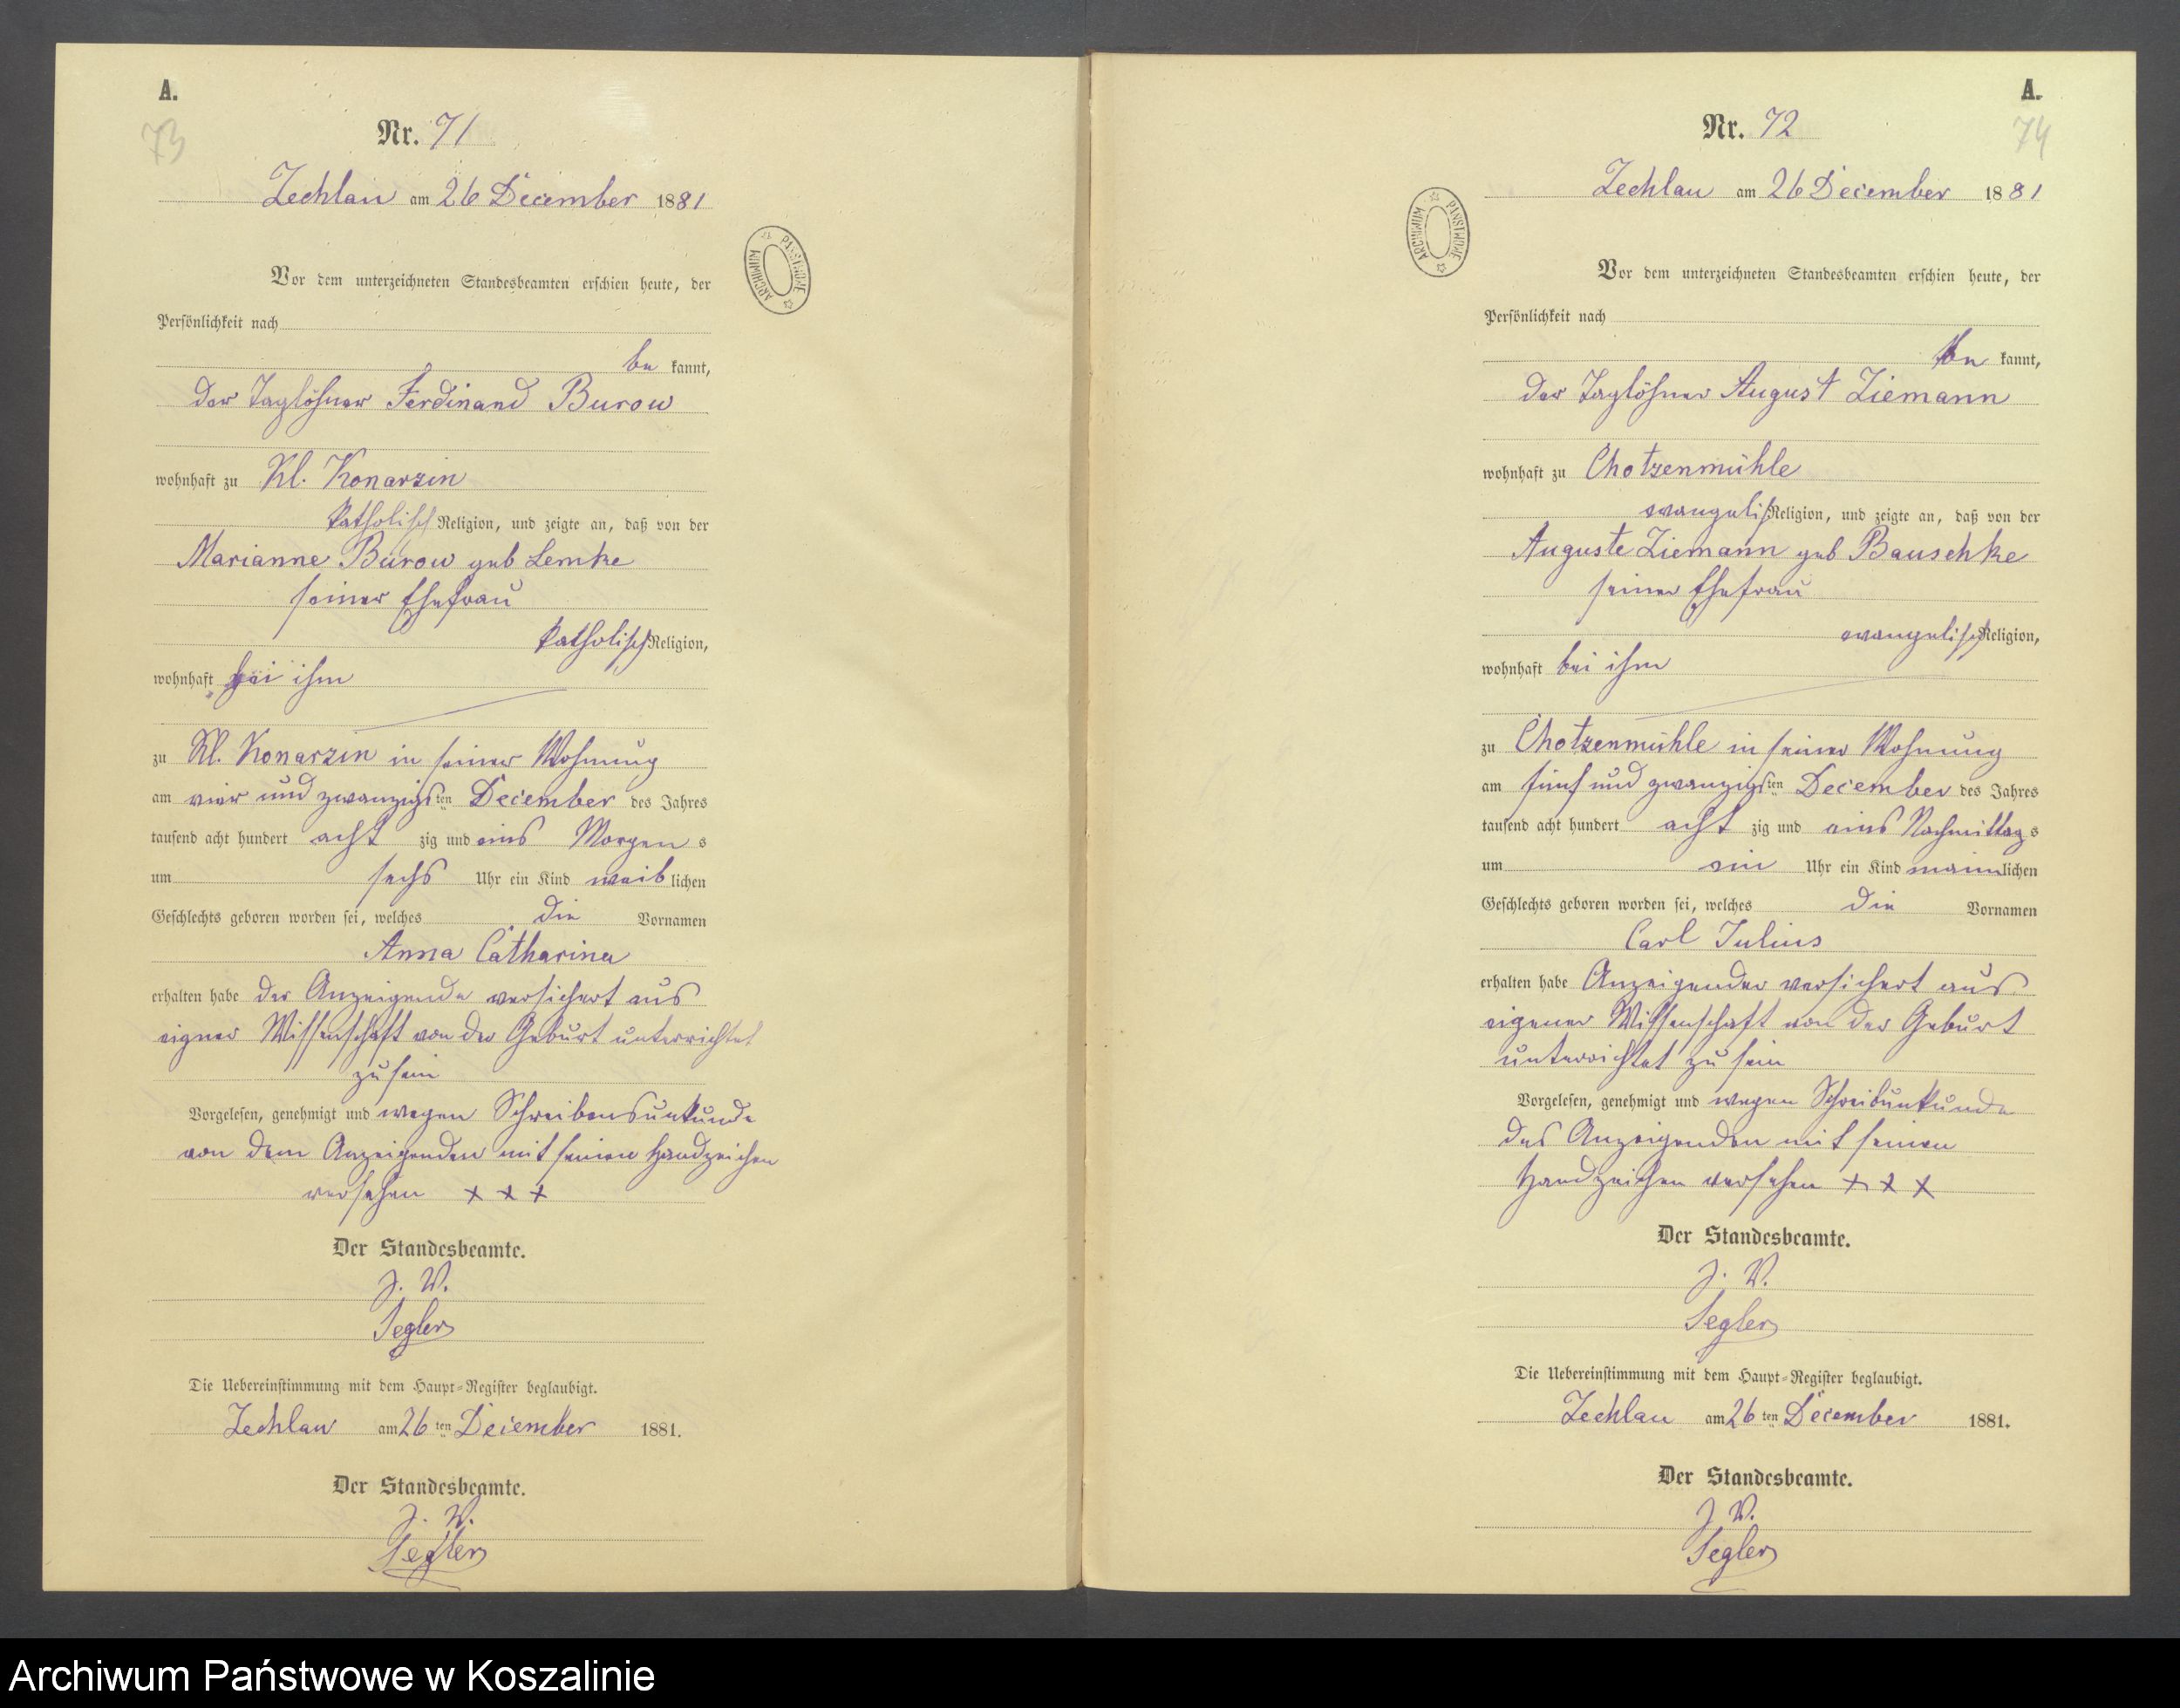 A.
73
Nr. 71
Zechlau am 26 December 1881
ARCHIWUM PAŃSTWOWE
Vor dem unterzeichneten Standesbeamten erschien heute, der
Persönlichkeit nach
be kannt,
der Taglöhner Ferdinand Burow
wohnhaft zu Kl. Konarzin
katholisch Religion, und zeigte an, daß von der
Marianne Burow geb Lemke
seiner Ehefrau
katholisch Religion,
wohnhaft bei ihm
zu Kl. Konarzin in seiner Wohnung
am vier und zwanzigsten December des Jahres
tausend acht hundert acht zig und eins Morgens
um sechs Uhr ein Kind weiblichen
Geschlechts geboren worden sei, welches die Vornamen
Anna Catharina
erhalten habe der Anzeigende versichert aus
eigner Wissenschaft von der Geburt unterrichtet
zu sein
Vorgelesen, genehmigt und wegen Schreibensunkunde
von dem Anzeigenden mit seinen Handzeichen
versehen + + +
Der Standesbeamte.
J. V.
Segler
Die Uebereinstimmung mit dem Haupt-Register beglaubigt.
Zechlau am 26 ten December 1881.
Der Standesbeamte.
J. V.
Segler
A.
74
Nr. 72
Zechlau am 26 December 1881
ARCHIWUM PAŃSTWOWE
Vor dem unterzeichneten Standesbeamten erschien heute, der
Persönlichkeit nach
be kannt,
der Taglöhner August Ziemann
wohnhaft zu Chotzenmühle
evangelisch Religion, und zeigte an, daß von der
Auguste Ziemann geb Bauschke
seiner Ehefrau
evangelisch Religion,
wohnhaft bei ihm
zu Chotzenmühle in seiner Wohnung
am fünf und zwanzigsten December des Jahres
tausend acht hundert acht zig und eins Nachmittags
um ein Uhr ein Kind männlichen
Geschlechts geboren worden sei, welches die Vornamen
Carl Julius
erhalten habe Anzeigender versichert aus
eigener Wissenschaft von der Geburt
unterrichtet zu sein
Vorgelesen, genehmigt und wegen Schreibunkunde
des Anzeigenden mit seinen
Handzeichen versehen + + +
Der Standesbeamte.
J. V.
Segler
Die Uebereinstimmung mit dem Haupt-Register beglaubigt.
Zechlau am 26 ten December 1881.
Der Standesbeamte.
J. V.
Segler
Archiwum Państwowe w Koszalinie